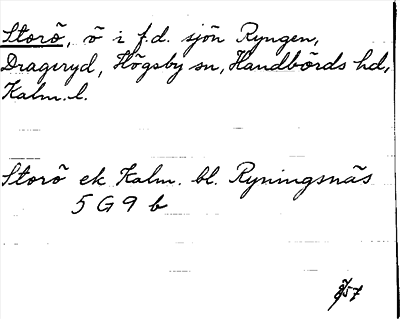 Storö, ö i f.d. sjön Ryngen,
Drageryd, Högsby sn, Handbörds hd,
Kalm. l.
Storö ek Kalm. bl. Ryningsnäs
5 G 9 b